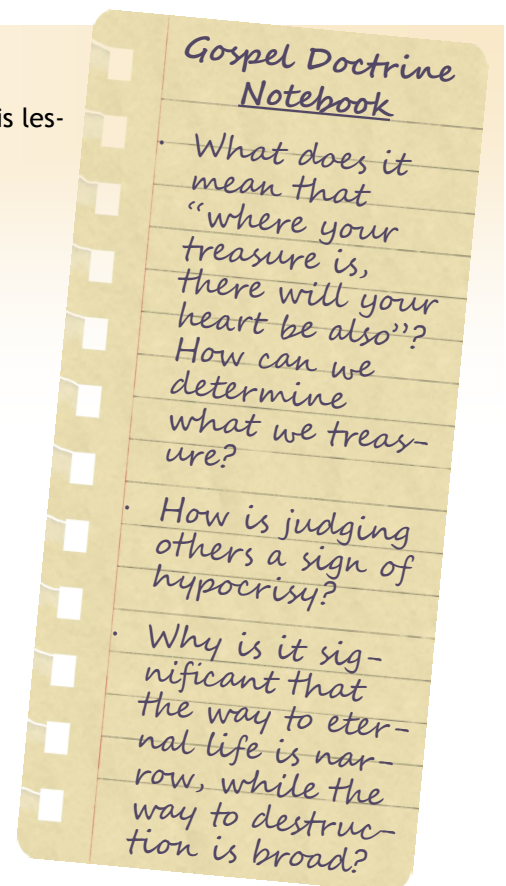 is les-
Gospel Doctrine
Notebook
· What does it
mean that
“where your
treasure is,
there will your
heart be also”?
How can we
determine
what we treas-
ure?
· How is judging
others a sign of
hypocrisy?
· Why is it sig-
nificant that
the way to eter-
nal life is nar-
row, while the
way to destruc-
tion is broad?